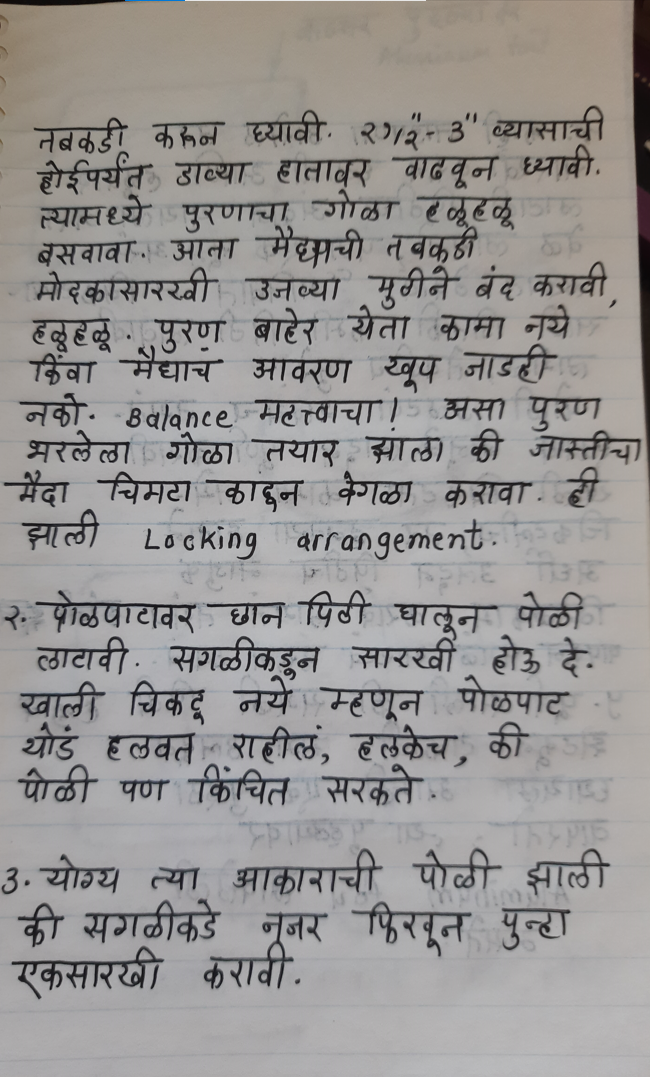 तबकडी करून घ्यावी. २१/२"- ३" व्यासाची
होईपर्यंत डाव्या हातावर वाढवून घ्यावी.
त्यामध्ये पुरणाचा गोळा हळूहळू
बसवावा. आता मैद्याची तबकडी
मोदकासारखी उजव्या मुठीने बंद करावी,
हळूहळू. पुरण बाहेर येता कामा नये
किंवा मैद्याचं आवरण खूप जाडही
नको. Balance महत्त्वाचा! असा पुरण
भरलेला गोळा तयार झाला की जास्तीचा
मैदा चिमटा काढून वेगळा करावा. ही
झाली Locking arrangement.
२. पोळपाटावर छान पिठी घालून पोळी
लाटावी. सगळीकडून सारखी होऊ दे.
खाली चिकटू नये म्हणून पोळपाट
थोडं हलवत राहीलं, हलकेच, की
पोळी पण किंचित सरकते.
३. योग्य त्या आकाराची पोळी झाली
की सगळीकडे नजर फिरवून पुन्हा
एकसारखी करावी.